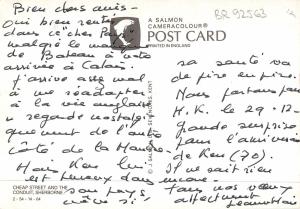 Bien chers amis -
Oui bien rentrés
dans "ce cher Pays"
malgré le manque
de Bateau à notre
arrivée à Calais.
J'arrive assez mal
à me réadapter
à la vie anglaise
regarde nostalgi-
quement de l'autre
côté de la Manche
Mais Ken lui
est heureux dans
son pays,
même si
sa santé va
de pire en pire.
Nous partons pour
H.K. le 29-12
grande surprise
pour l'anniversaire
de Ken (70).
Il ne sait rien
encore.
Tous nos vœux
affectueux
BR 92563
A SALMON
CAMERACOLOUR
POST CARD
PRINTED IN ENGLAND
CHEAP STREET AND THE
CONDUIT, SHERBORNE
2-54-14-04